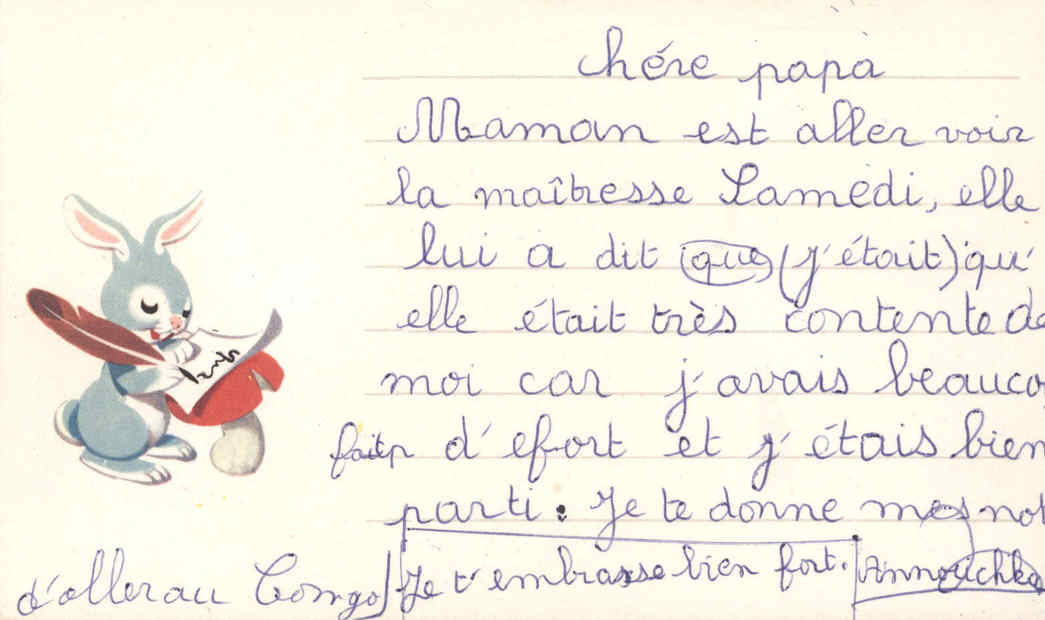 chére papa
Maman est aller voir
la maîtresse Samedi, elle
lui a dit que (j'était) qu'
elle était très contente de
moi car j'avais beauco
fait p d'efort et j'étais bien
parti. Je te donne mes not
d'aller au Congo Je t'embrasse bien fort. Annouchka